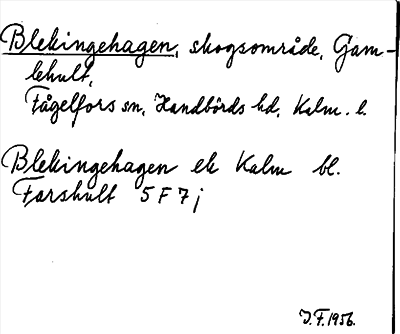 Blekingehagen, skogsområde, Gam-
lehult,
Fågelfors sn, Handbörds hd, Kalm. l.
Blekingehagen ek Kalm bl.
Farshult 5 F 7 j
J.F. 1956.